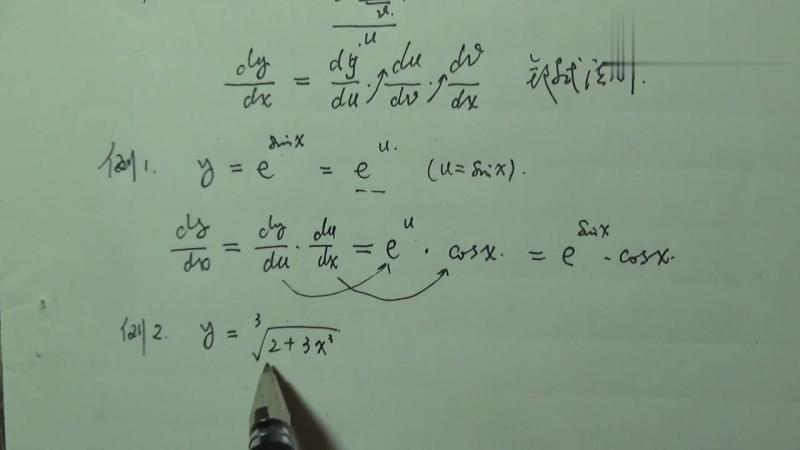 v
u
dy/dx = dy/du · du/dv · dv/dx 链式法则.
例1. y = e^{sinx} = e^{u}. (u=sinx).
dy/dx = dy/du · du/dx = e^{u} · cosx. = e^{sinx} · cosx.
例2. y = ∛(2+3x³)